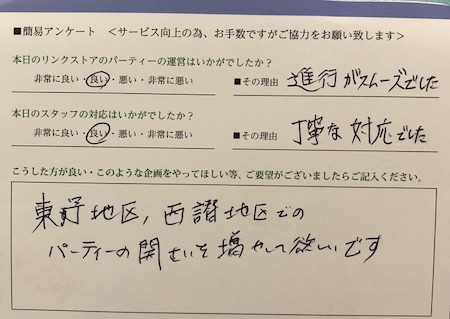 ■簡易アンケート ＜サービス向上の為、お手数ですがご協力をお願い致します＞
本日のリンクストアのパーティーの運営はいかがでしたか？
非常に良い・良い・悪い・非常に悪い ■その理由 進行がスムーズでした
本日のスタッフの対応はいかがでしたか？
非常に良い・良い・悪い・非常に悪い ■その理由 丁寧な対応でした
こうした方が良い・このような企画をやってほしい等、ご要望がございましたらご記入ください。
東予地区，西讃地区での
パーティーの開さいを増やして欲しいです